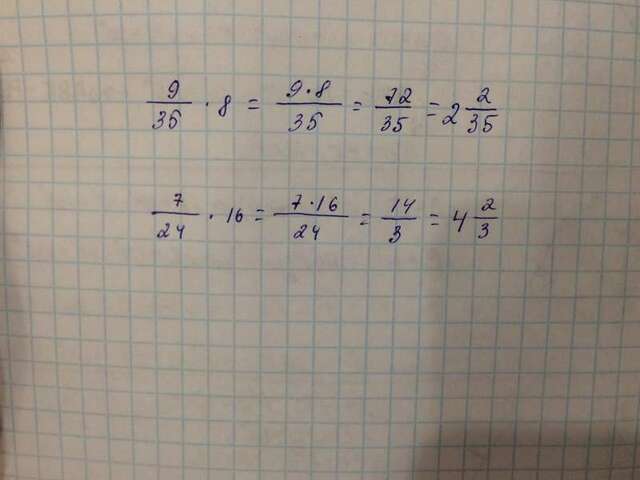 9/35 · 8 = 9·8/35 = 72/35 = 2 2/35
7/24 · 16 = 7·16/24 = 14/3 = 4 2/3